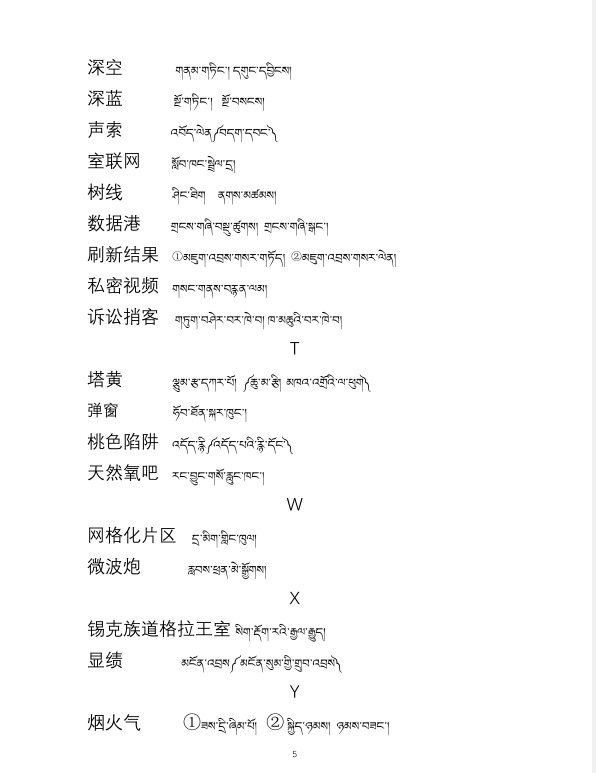 深空 གནམ་གཏིང་། དགུང་དབྱིངས།
深蓝 སྔོ་གཏིང་། སྔོ་བསངས།
声索 འབོད་ལེན༼བདག་དབང༽
室联网 སློབ་ཁང་སྦྲེལ་དྲ།
树线 ཤིང་ཐིག ནགས་མཚམས།
数据港 གྲངས་གཞི་བསྡུ་ཚུགས། གྲངས་གཞི་སྒང་།
刷新结果 ①མཇུག་འབྲས་གསར་གཏོད། ②མཇུག་འབྲས་གསར་ལེན།
私密视频 གསང་གནས་བརྙན་ལམ།
诉讼捎客 གཏུག་བཤེར་བར་ཁེ་བ། ཁ་མཆུའི་བར་ཁེ་བ།
T
塔黄 ལྕུམ་རྩ་དཀར་པོ། ༼ཆུ་མ་རྩི། མཁའ་འགྲོའི་ལ་ཕུག༽
弹窗 ཧོབ་ཐོན་སྐར་ཁུང་།
桃色陷阱 འདོད་རྙི༼འདོད་པའི་རྙི་དོང༽
天然氧吧 རང་བྱུང་གསོ་རླུང་ཁང་།
W
网格化片区 དྲ་མིག་གླིང་ཁུལ།
微波炮 རླབས་ཕྲན་མེ་སྒྱོགས།
X
锡克族道格拉王室 སིག་རྡོག་རའི་རྒྱལ་རྒྱུད།
显绩 མངོན་འབྲས༼མངོན་སུམ་གྱི་གྲུབ་འབྲས༽
Y
烟火气 ①ཟས་དྲི་ཞིམ་པོ། ②སྐྱིད་ཉམས། ཉམས་བཟང་།
5